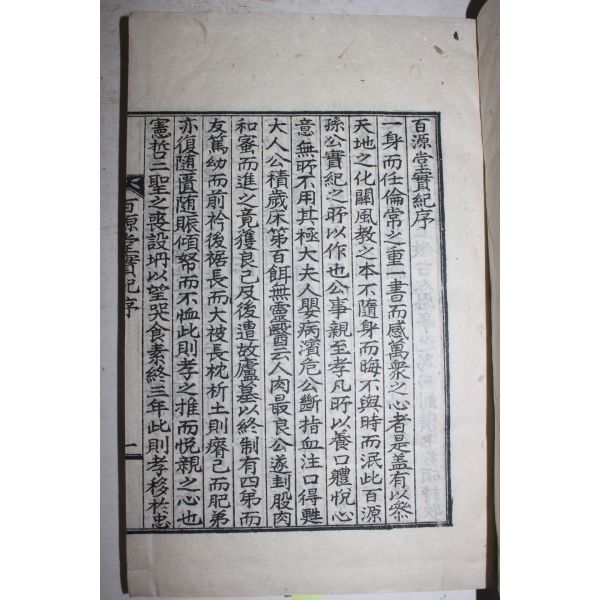 百源堂實紀序
一身而任倫常之重一書而感萬衆之心者是盖有以叅
天地之化關風教之本不隨身而晦不與時而泯此百源
孫公實紀之所以作也公事親至孝凡所以養口體悅心
意無所不用其極大夫人嬰病濱危公斷指血注口得甦
大人公積歲床笫百餌無靈醫云人肉最良公遂刲股肉
和羹而進之竟獲良已及後遭故廬墓以終制有四弟而
友篤幼而前衿後裾長而大被長枕析土則瘠己而肥弟
亦復隨匱隨賑傾帑而不恤此則孝之推而悅親之心也
憲哲二聖之喪設坍以望哭食素終三年此則孝移於忠
百源堂實紀序
一